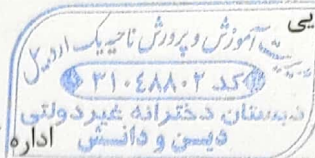 یی
مدیریت آموزش و پرورش ناحیه یک اردبیل
کد ۳۱۰٤۸۸۰۲
دبستان دخترانه غیردولتی
دیـن و دانـش
اداره